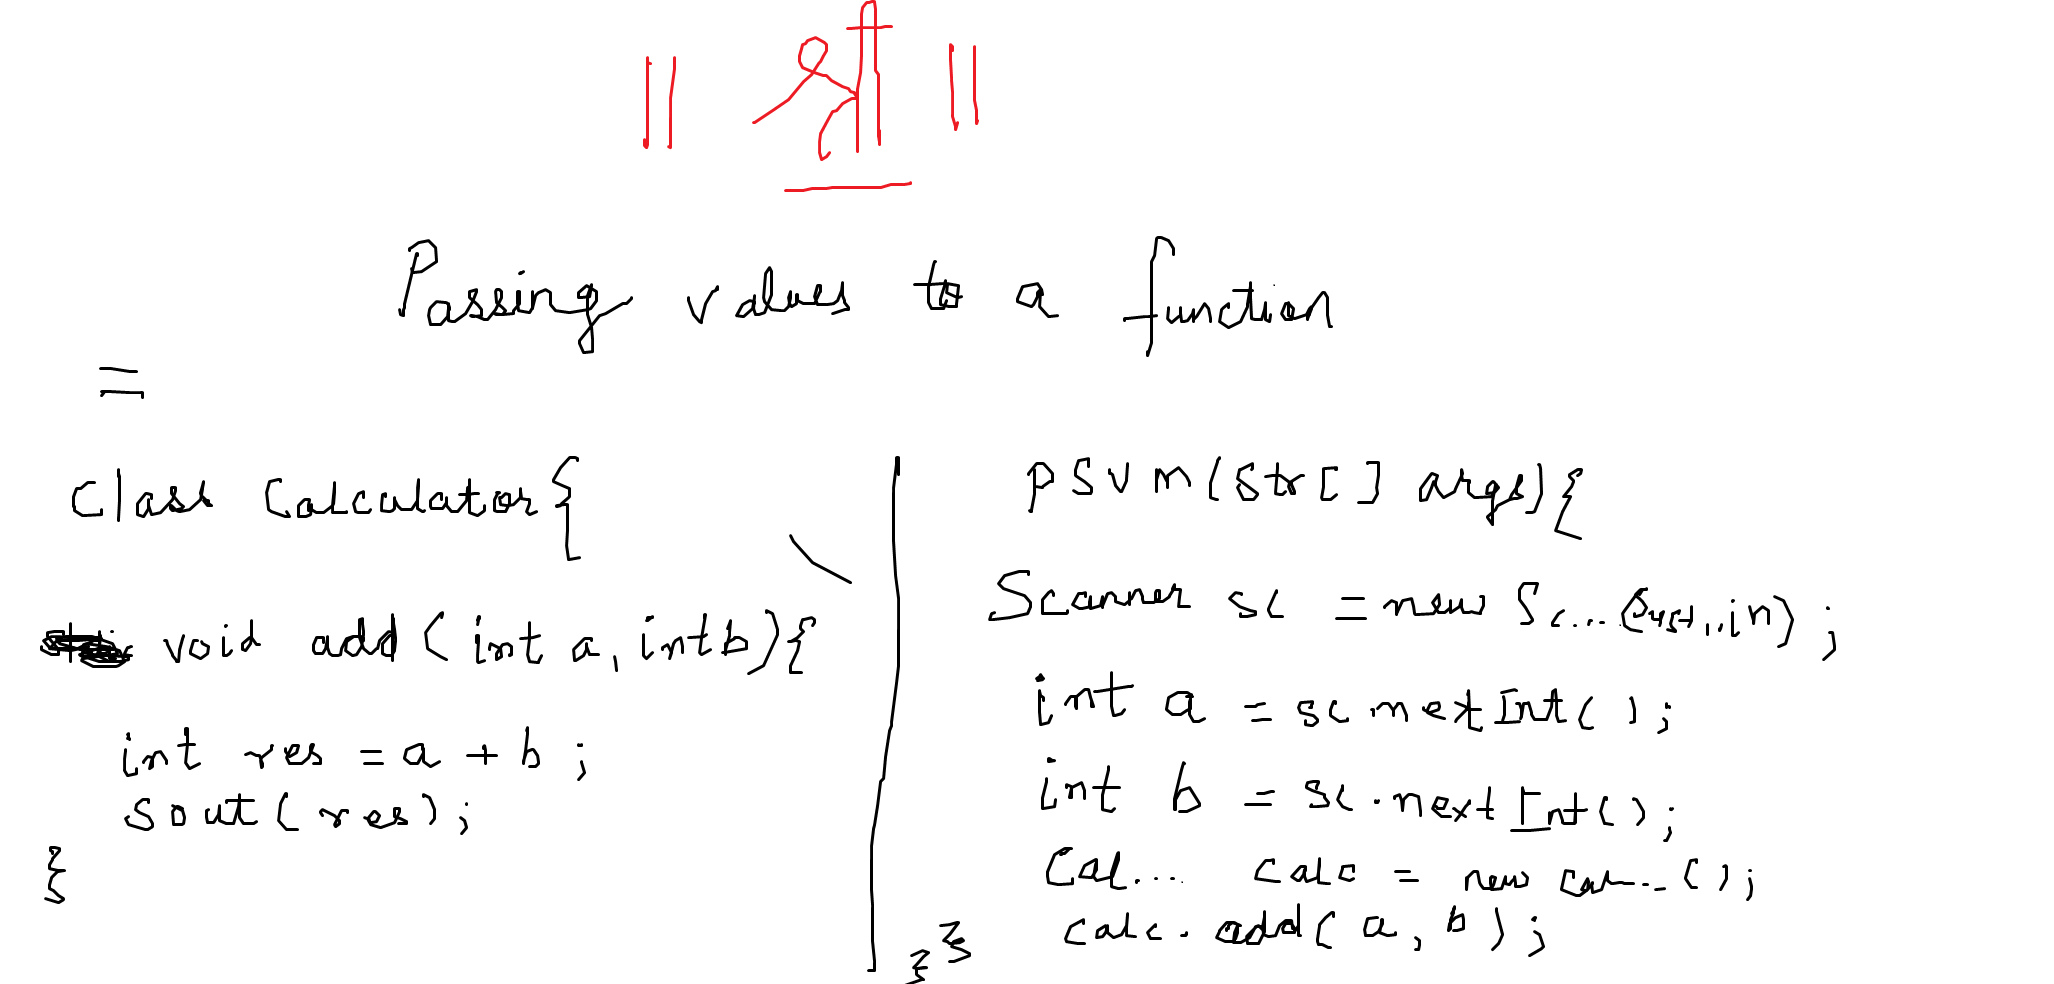 || श्री ||
Passing values to a function
=
class Calculator{
void add(int a, int b){
int res = a + b ;
sout(res);
}
psvm(Str[] args){
Scanner sc = new Sc....(Syst..in) ;
int a = sc.nextInt();
int b = sc.nextInt();
Cal... calc = new Cal...();
calc.add(a, b);
}}